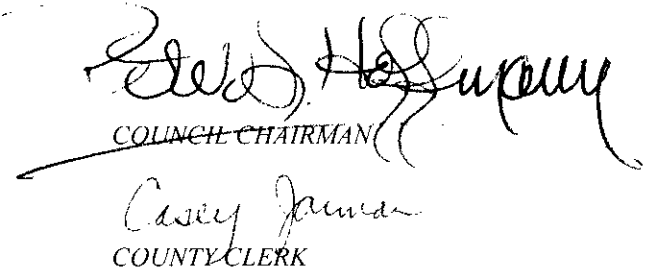 Hoffmann
COUNCIL CHAIRMAN
Casey Jarman
COUNTY CLERK